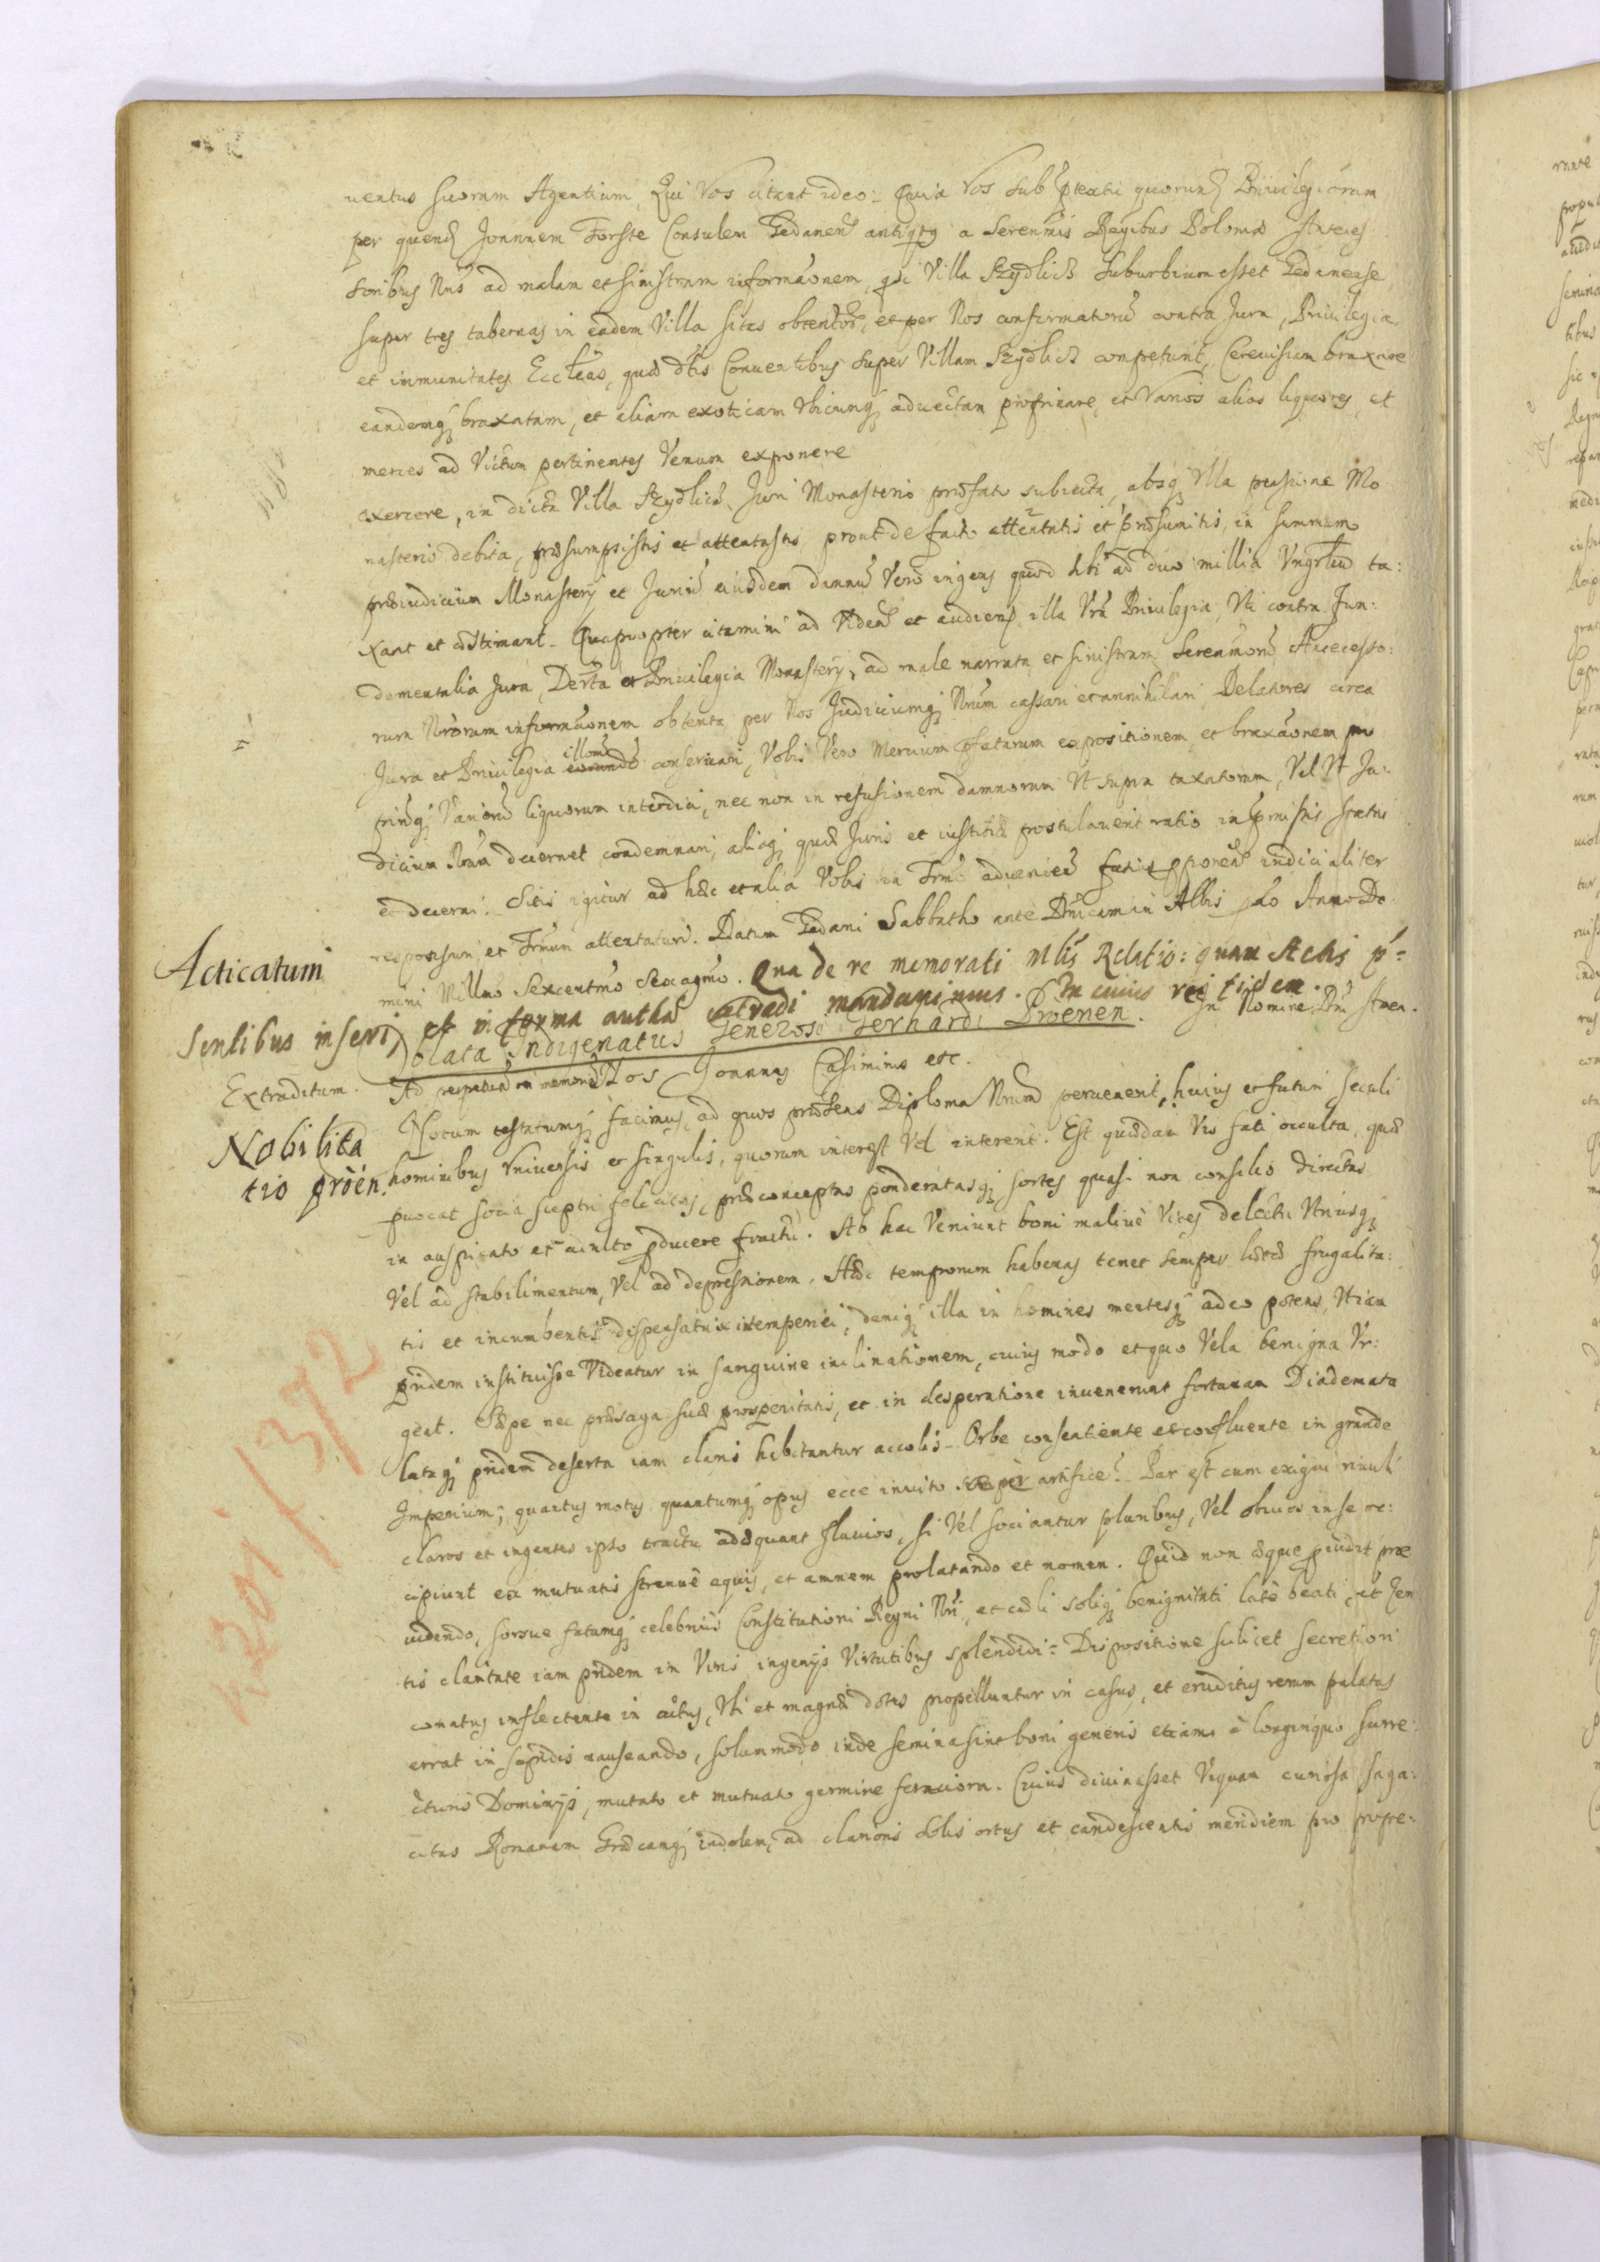 uentus suorum Agentium, Qui Vos citant ideo: Quia Vos sub ptextu quorund Priuilegiorum
per quend Joannem Forste Consulem Gedanen antiqtg a Serenmis Regibus Poloniæ Anteces
soribus Nris ad malam et sinistram informaonem, qsi Villa Szydlice suburbium esset Gedanense
super tres tabernas in eadem Villa sitas obtentor, et per Nos confirmatoru contra Jura, Priuilegia
et immunitates Eccleas, quæ dtis Conuentibus super Villam Szydlice competunt, Cereuisiam braxare
eandemq braxatam, et aliam exoticam Vbicunq aduectam propinare, et Varios alios liquores, et
merces ad Victum pertinentes Venum exponere
exercere, in dicta Villa Szydlice Juri Monasterio præfato subiecta, absq Vlla pensione Mo
nasterio debita, præsumpsistis et attentastis prout de facto attentatis et præsumitis, in summum
præiudicium Monastery et Juris eiusdem damnu Vero ingens quod sibi ad duo millia Vngrlu ta:
xant et æstimant. Quapropter citamini ad Viden et audien illa Vra Priuilegia, Vti contra Fun:
damentalia Jura, Derta et Priuilegia Monastery, ad male narrata et sinistram Serenmoru Antecesso:
rum Nrorum informaonem obtenta per Nos Judiciumq Nrum cassari et annihilari, Delatores circa
Jura et Priuilegia illorum conseruari, Vobis Vero Mercium pfatarum expositionem et braxaonem pro
prinq Varioru liquorum interdici, nec non in refusionem damnorum Vt supra taxatorum, Vel Vt Ju:
dicium Nrum decernet condemnari, aliaq quæ Juris et iustitiæ postulauerit ratio in pmissis statui
et decerni. Sitis igitur ad hæc et alia Vobis in Trmo adueniem pponen iudicialiter
responsuri et Trmum attentaturi. Datum Gedani Sabbatho ante Dnicam in Albis Ao Anno Do
mini Millmo Sexcentmo Sexagmo. Qua de re memorati Mlis Relatio: quam Actis p=
Acticatum
sentibus inseri, et in forma autha extradi mandauimus. In cuius rei fidem.
Extraditum.
Solata Indigenatus Generosi Gerhardi Proenen. In Nomine Dni Amen.
Ad perpetuam rei memoria Nos Joannes Casimirus etc.
Nobilita
tio proèn.
Notum testatumq facimus, ad quos præsens Diploma Nrum peruenerit, huius et futuri seculi
hominibus Vniuersis et singulis, quorum interest Vel intererit. Est quædam Vis fati occulta, quæ
puocat socia sceptri felicitas, præconceptas ponderatasq sortes quasi non consilio directas
in auspicato et adulto pducere fructu. Ab hac Veniunt boni maliue Vices delectu Vtriusq
Vel ad stabilimentum, Vel ad depressionem. Hæc temporum habenas tenet semper lætæ frugalita:
tis et incumbentis dispensatrix intemperiei, deniq illa in homines mentesq adeo potens, Vt iam
pridem instituisse Videatur in sanguine inclinationem, cuius modo et quo Vela benigna Vr:
geat. Sæpe nec præsaga suæ prosperitatis, et in desperatione inuenerunt fortunam Diademata
lataq pridem deserta iam claris habitantur accolis. Orbe consentiente et confluente in grande
Imperium; quartus motus quantumq opus ecce inuito sæpe artifice? Par est cum exigui riuuli
claros et ingentes ipso tractu adæquant fluuios, si Vel sociantur pluribus, Vel obuios in se ac:
cipiunt ex mutuatis strenuè aquis, et amnem prolatando et nomen. Quid non æque piudit præ
uidendo, sorsue fatumq celebrius Constitutioni Regni Nri, et cæli soliq benignitati latè beati, et Gen
tis claritate iam pridem in Viris ingenijs Virtutibus splendidi: Dispositione scilicet secretiori
conatus inflectente in actus, Vti et magnæ dotes propelluntur in casus, et eruditus rerum palatus
errat in sapidis nauseando, solummodo inde semina sint boni generis etiam è longinquo surre:
cturis Dominijs, mutato et mutuato germine feraciora. Cuius diuinasset Vnquam curiosa saga:
citas Romanam Græcamq indolem, ad clarioris solis ortus et candescentis meridiem pro prospe:
Kzoij/372